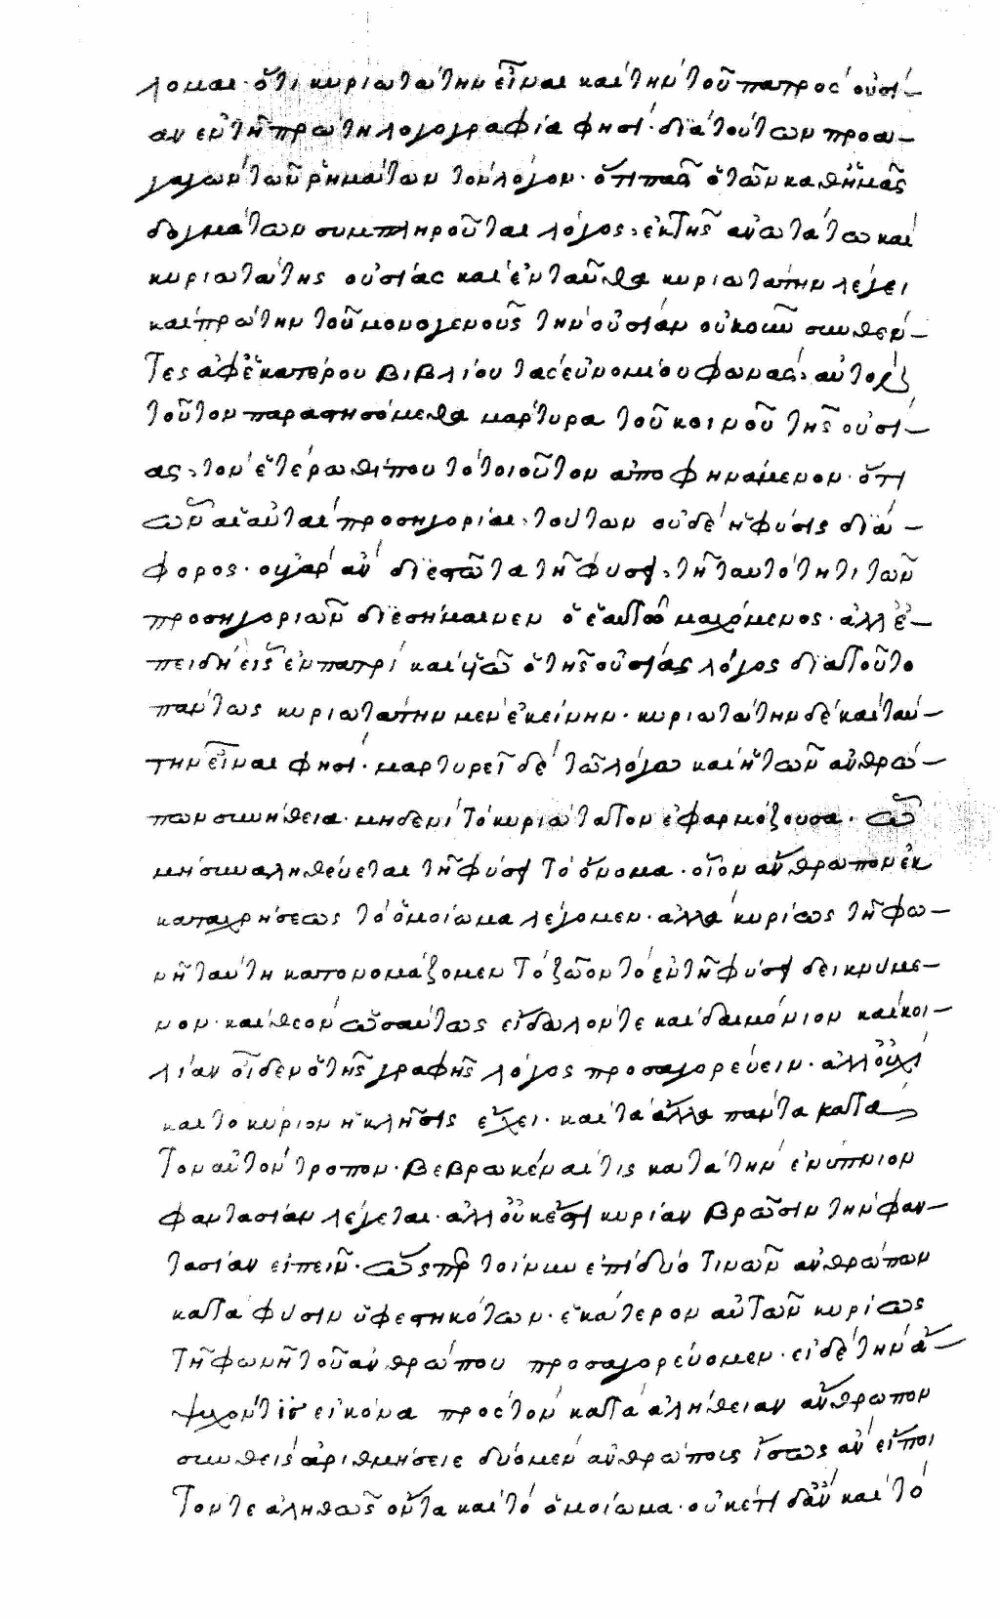 λομαι· ὅτι κυριωτάτην εἶναι καὶ τὴν τοῦ πατρὸς οὐσί–
αν ἐν τῇ πρώτῃ λογογραφία φησί· διὰ τούτων προα–
γαγὼν τῶν ῥημάτων τὸν λόγον· ὅτι πᾶς ὁ τῶν καθ' ἡμᾶς
δογμάτων συμπληροῦται λόγος, ἐκ τῆς ἀνωτάτω καὶ
κυριωτάτης οὐσίας καὶ ἐνταῦθα κυριωτάτην λέγει
καὶ πρώτην τοῦ μονογενοῦς τὴν οὐσίαν οὐκοῦν συνθέν–
τες ἀφ' ἑκατέρου βιβλίου τὰς εὐνομίου φωνάς, αὐτὸν
τοῦτον παραστησόμεθα μάρτυρα τοῦ κοινοῦ τῆς οὐσί–
ας, τὸν ἑτέρωθί που τὸ τοιοῦτον ἀποφηνάμενον· ὅτι
ὧν αἱ αὐταὶ προσηγορίαι, τούτων οὐδὲ ἡ φύσις διά–
φορος· οὐ γὰρ ἂν διεστῶτα τῇ φύσει, τῇ ταυτότητι τῶν
προσηγοριῶν διεσήμαινεν ὁ ἑαυτῷ μαχόμενος· ἀλλ' ἐ–
πειδὴ εἷς ἐν πατρὶ καὶ υἱῷ ὁ τῆς οὐσίας λόγος διατοῦτο
πάντως κυριωτάτην μὲν ἐκείνην· κυριωτάτην δὲ καὶ ταύ–
την εἶναι φησί· μαρτυρεῖ δὲ τῷ λόγω καὶ ἡ τῶν ἀνθρώ–
πων συνήθεια· μηδενὶ τὸ κυριώτατον ἐφαρμόζουσα· ᾧ
μὴ συναληθεύεται τῇ φύσει τὸ ὄνομα· οἷον ἄνθρωπον ἐκ
καταχρήσεως τὸ ὁμοίωμα λέγομεν· ἀλλὰ κυρίως τῇ φω–
νῇ ταύτη κατονομάζομεν τὸ ζῷον τὸ ἐν τῇ φύσει δεικνύμε–
νον· καὶ θεὸν ὡσαύτως εἴδωλόν τε καὶ δαιμόνιον καὶ κοι–
λίαν οἶδεν ὁ τῆς γραφῆς λόγος προσαγορεύειν· ἀλλ' οὐχὶ
καὶ τὸ κύριον ἡ κλῆσις ἔχει· καὶ τὰ ἄλλα πάντα κατὰ
τὸν αὐτὸν τρόπον· βεβρωκέναι τις κατὰ τὴν ἐνύπνιον
φαντασίαν λέγεται· ἀλλ' οὐκ ἔστι κυρίαν βρῶσιν τὴν φαν–
τασίαν εἰπεῖν· ὥσπερ τοίνυν ἐπὶ δύο τινῶν ἀνθρώπων
κατὰ φύσιν ὑφεστηκότων· ἑκάτερον αὐτῶν κυρίως
τῇ φωνῇ τοῦ ἀνθρώπου προσαγορεύομεν· εἰ δὲ τὴν ἄ–
ψυχόν τις εἰκόνα πρὸς τὸν κατὰ ἀλήθειαν ἄνθρωπον
συνθεὶς ἀριθμήσειε δύο μὲν ἀνθρώπους ἴσως ἂν εἴποι
τόν τε ἀληθῶς ὄντα καὶ τὸ ὁμοίωμα· οὐκέτι δ' ἂν καὶ τὸ